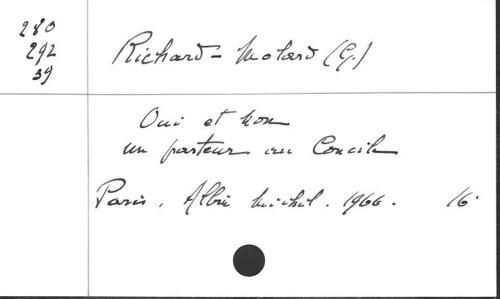 280
292
39
Richard-Molard (G.)
Oui et non
un pasteur au Concile
Paris, Albin Michel. 1966. 16°